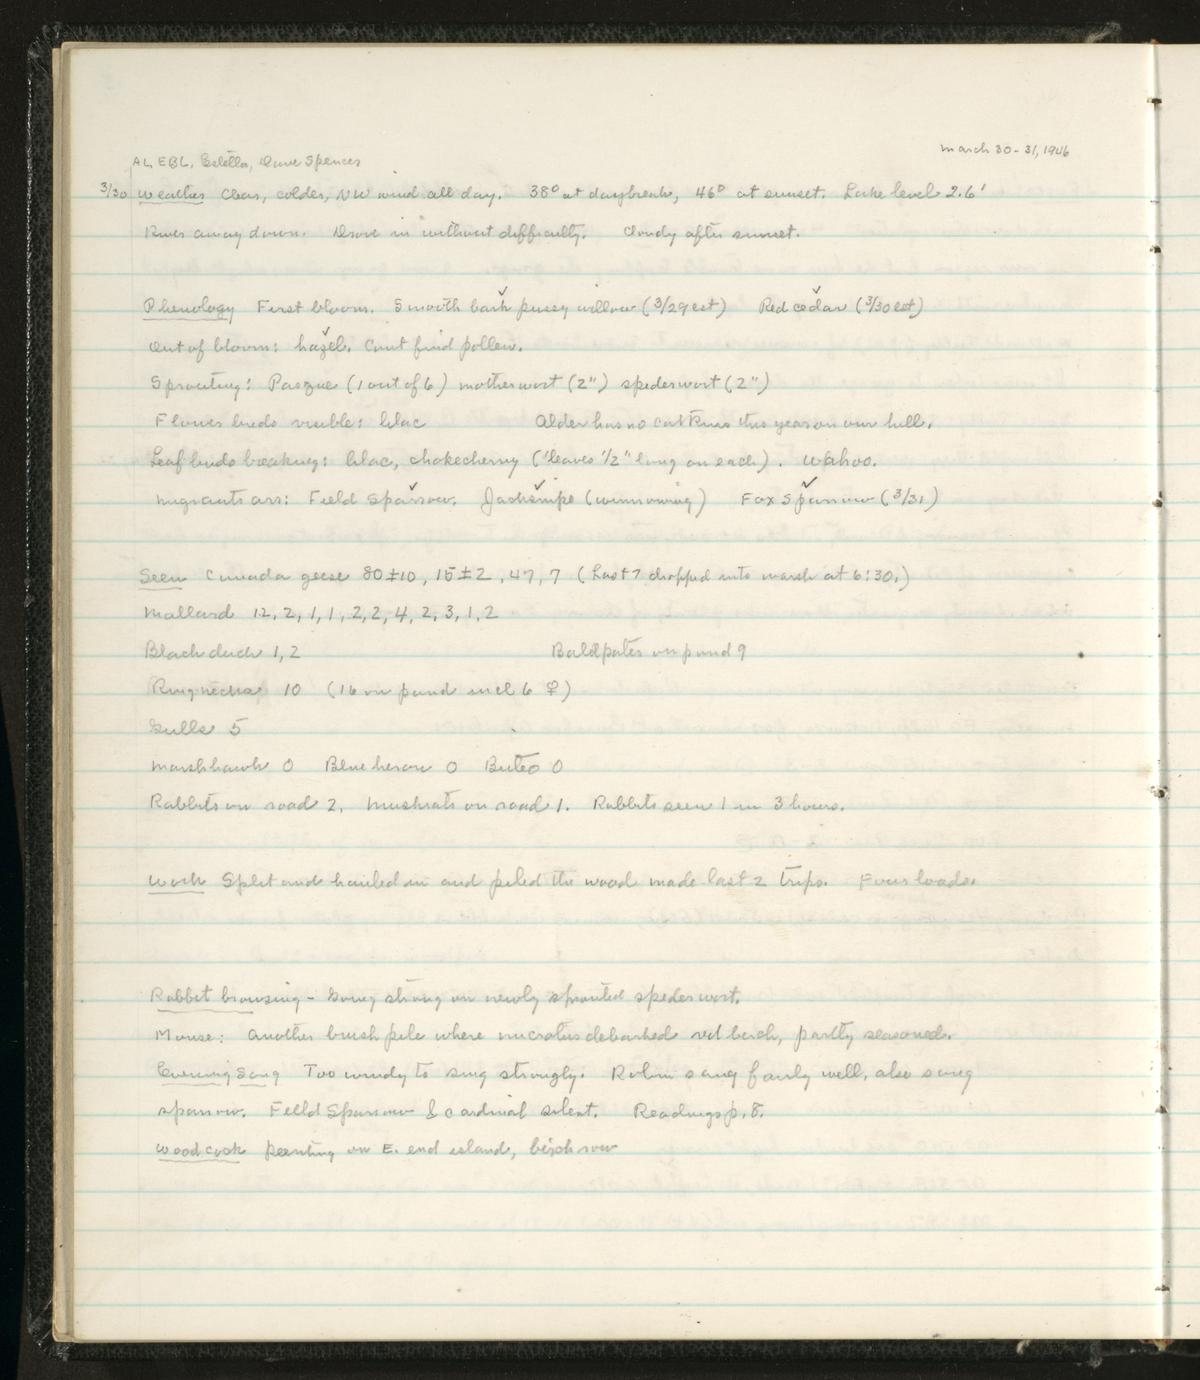 March 30-31, 1946
AL, EBL, Estella, Dave Spencer
3/30 Weather Clear, colder, NW wind all day. 38° at daybreak, 46° at sunset. Lake level 2.6'
River away down. Drove in without difficulty. Cloudy after sunset.
Phenology First bloom. Smooth bark pussy willow (3/29 est) Red cedar (3/30 est)
Out of bloom: hazel. Cant find pollen.
Sprouting: Pasque (1 out of 6) motherwort (2") spiderwort (2")
Flower buds visible: lilac Alder has no catkins this year on our hill.
Leaf buds breaking: lilac, chokecherry (leaves 1/2" long on each). Wahoo.
Migrants arr: Field Sparrow. Jacksnipe (winnowing) Fox Sparrow (3/31)
Seen Canada geese 80±10, 15±2, 47, 7 (Last 7 dropped into marsh at 6:30.)
Mallard 12, 2, 1, 1, 2, 2, 4, 2, 3, 1, 2
Black duck 1, 2 Baldpates on pond 9
Ringnecks 10 (16 on pond incl 6 ♀)
Gulls 5
Marsh hawk 0 Blue heron 0 Buteo 0
Rabbits on road 2. Muskrats on road 1. Rabbits seen 1 in 3 hours.
Work Split and hauled in and piled the wood made last 2 trips. Four loads.
Rabbit browsing - Going strong on newly sprouted spiderwort.
Mouse: Another brush pile where microtus debarked red birch, partly seasoned.
Evening Song Too windy to sing strongly. Robin sang fairly well, also song
sparrow. Field Sparrow & cardinal silent. Readings p. 8.
Woodcock peenting on E. end island, birch row